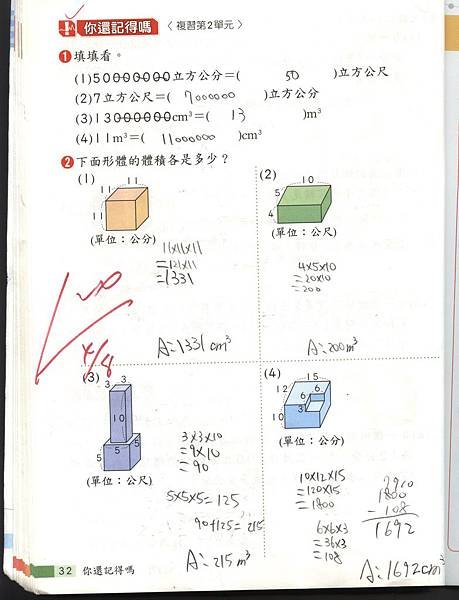 你還記得嗎 〈複習第2單元〉
❶填填看。
(1)50000000立方公分=( 50 )立方公尺
(2)7立方公尺=( 7000000 )立方公分
(3)13000000cm³=( 13 )m³
(4)11m³=( 11000000 )cm³
❷下面形體的體積各是多少？
(1)
11 11
11
(單位：公分)
11×11×11
=121×11
=1331
A:1331cm³
(2)
10
5
4
(單位：公尺)
4×5×10
=20×10
=200
A:200m³
4/8
(3)
3 3
10
5 5 5
(單位：公尺)
3×3×10
=9×10
=90
5×5×5=125
90+125=215
A:215m³
(4)
15
12
6 6
3
10
(單位：公分)
10×12×15
=120×15
=1800
6×6×3
=36×3
=108
1800
-108
1692
A:1692cm³
32 你還記得嗎